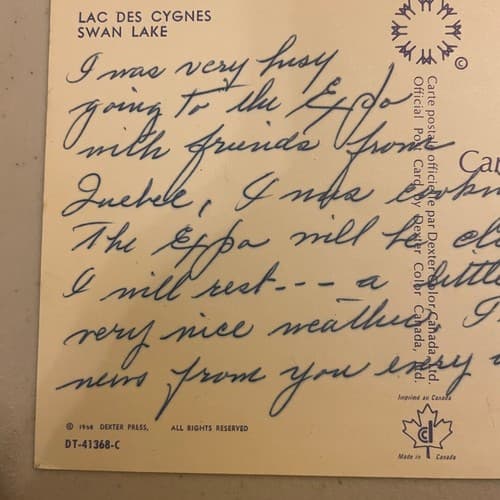 LAC DES CYGNES
SWAN LAKE
©
I was very busy
going to the Expo
with friends from
Quebec, I was
the Expo will be
I will rest --- a little
very nice weather, I
news from you every
Carte postale officielle par Dexter Color Canada, Ltd.
Official Post Card by Dexter Color Canada, Ltd.
Can
© 1968 DEXTER PRESS, ALL RIGHTS RESERVED
DT-41368-C
Imprimé au Canada
Made in Canada